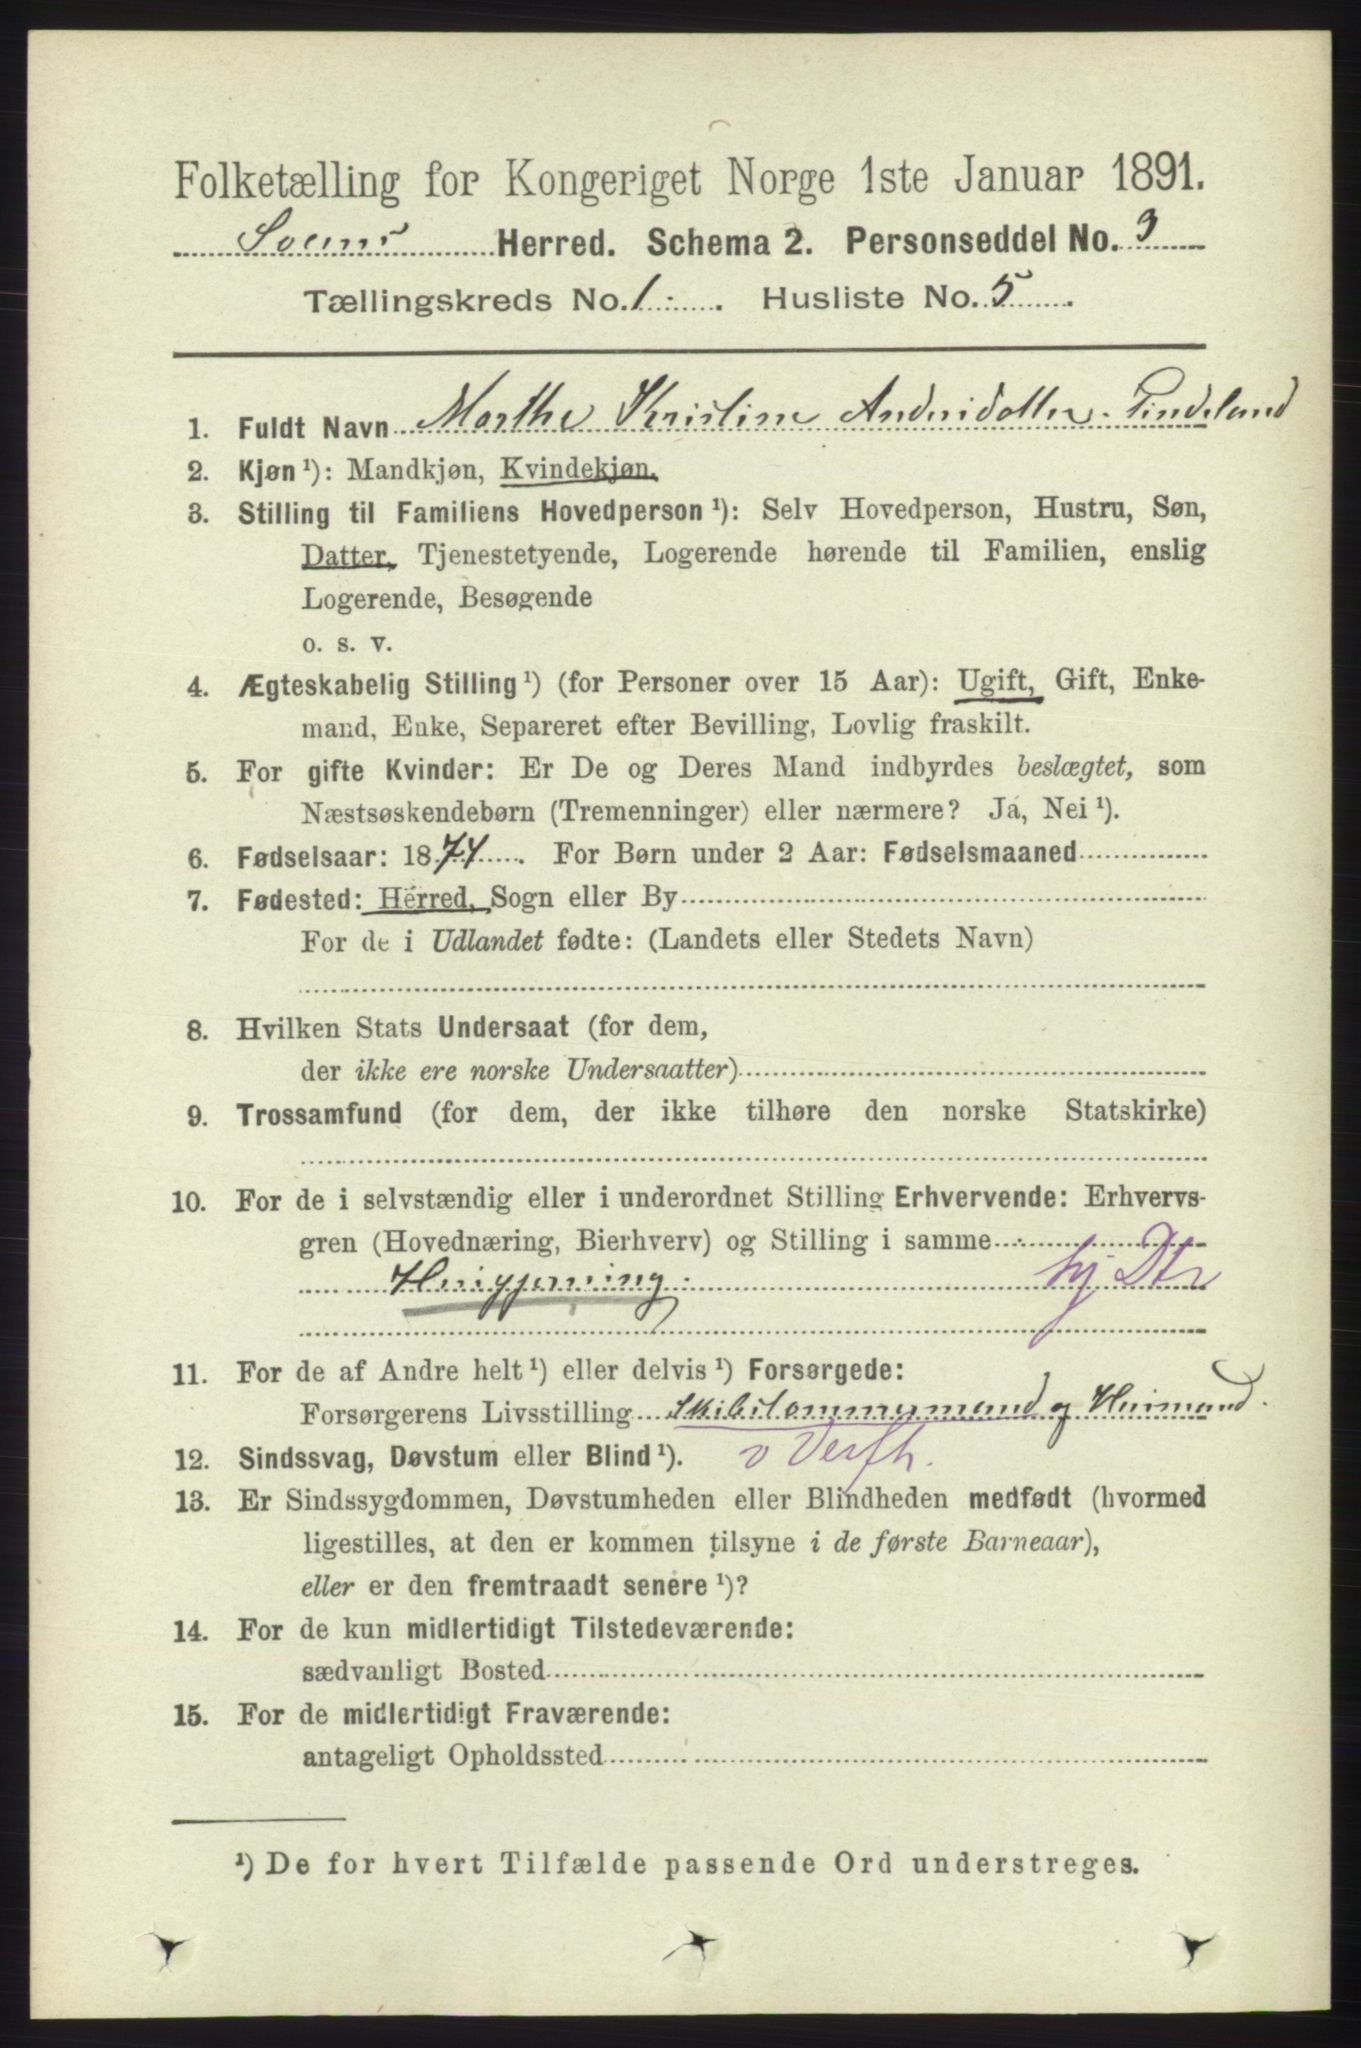 Folketælling for Kongeriget Norge 1ste Januar 1891.
Soems Herred. Schema 2. Personseddel No. 3
Tællingskreds No. 1. Husliste No. 5.
1. Fuldt Navn Marthe Kristine Andersdotter Pindsland
2. Kjøn ¹): Mandkjøn, Kvindekjøn.
3. Stilling til Familiens Hovedperson ¹): Selv Hovedperson, Hustru, Søn,
Datter, Tjenestetyende, Logerende hørende til Familien, enslig
Logerende, Besøgende
o. s. v.
4. Ægteskabelig Stilling ¹) (for Personer over 15 Aar): Ugift, Gift, Enke-
mand, Enke, Separeret efter Bevilling, Lovlig fraskilt.
5. For gifte Kvinder: Er De og Deres Mand indbyrdes beslægtet, som
Næstsøskendebørn (Tremenninger) eller nærmere? Ja, Nei ¹).
6. Fødselsaar: 1874. For Børn under 2 Aar: Fødselsmaaned
7. Fødested: Herred, Sogn eller By
For de i Udlandet fødte: (Landets eller Stedets Navn)
8. Hvilken Stats Undersaat (for dem,
der ikke ere norske Undersaatter)
9. Trossamfund (for dem, der ikke tilhøre den norske Statskirke)
10. For de i selvstændig eller i underordnet Stilling Erhvervende: Erhvervs-
gren (Hovednæring, Bierhverv) og Stilling i samme
Husgjerning. hj Dtr
11. For de af Andre helt ¹) eller delvis ¹) Forsørgede:
Forsørgerens Livsstilling Skibstømmermand og Husmand.
12. Sindssvag, Døvstum eller Blind ¹). v Verfh.
13. Er Sindssygdommen, Døvstumheden eller Blindheden medfødt (hvormed
ligestilles, at den er kommen tilsyne i de første Barneaar),
eller er den fremtraadt senere ¹)?
14. For de kun midlertidigt Tilstedeværende:
sædvanligt Bosted
15. For de midlertidigt Fraværende:
antageligt Opholdssted
¹) De for hvert Tilfælde passende Ord understreges.